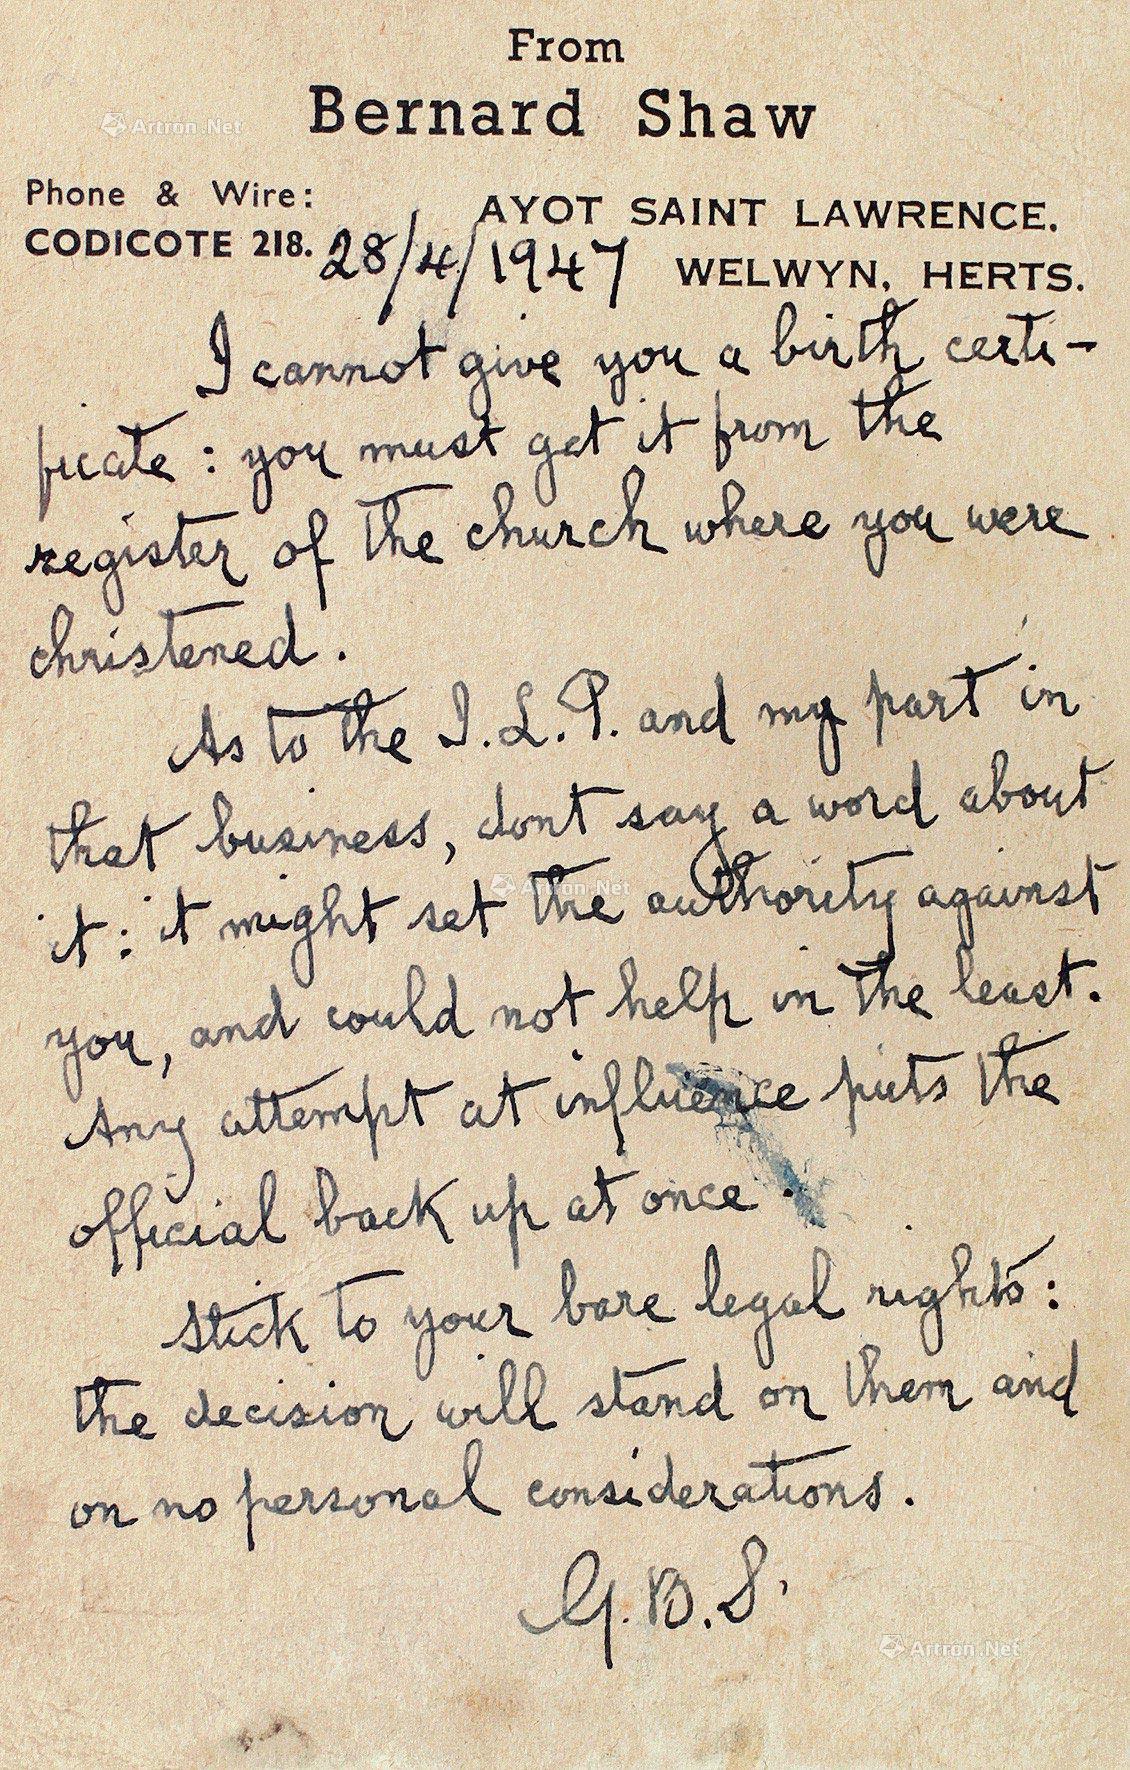 From
Bernard Shaw
Phone & Wire:
CODICOTE 218.
AYOT SAINT LAWRENCE.
WELWYN, HERTS.
28/4/1947
I cannot give you a birth certi-
ficate : you must get it from the
register of the church where you were
christened.
As to the I.L.P. and my part in
that business, dont say a word about
it: it might set the authority against
you, and could not help in the least.
Any attempt at influence puts the
official back up at once.
Stick to your bare legal rights:
the decision will stand on them and
on no personal considerations.
G.B.S.
Artron.Net
Artron.Net
Artron.Net